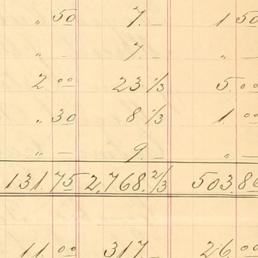 „ 50 7. — 1 50
„ — 7. — „ —
2 00 23 1/3 5 00
„ 30 8 1/3 1 00
„ — 9. — „ —
131.75 2,768. 2/3 503.86
11 00 317 — 26 00